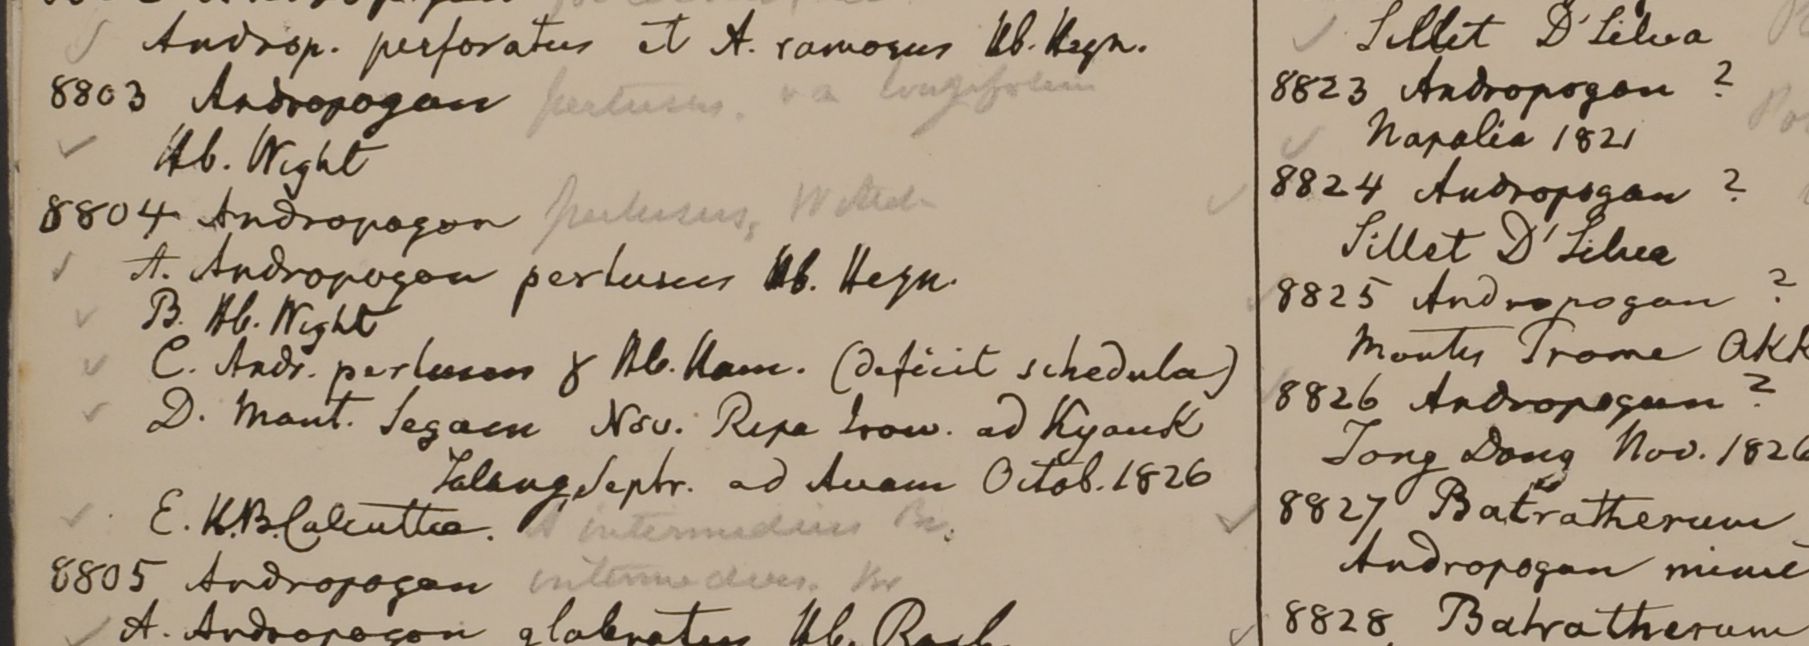 Androp. perforatus et A. ramosus Hb. Heyn.
8803 Andropogon pertusus. va longifolia
Hb. Wight
8804 Andropogon pertusus, Willd
A. Andropogon pertusus Hb. Heyn.
B. Hb. Wight
C. Andr. pertusus γ Hb. Ham. (deficit schedula)
D. Mont. Segaen Nov. Ripa Irow. ad Kyouk
Talong Septr. ad Avam Octob. 1826
E. H.B. Calcutta. A intermedius Br.
8805 Andropogon intermedius. Br
A. Andropogon glabratus Hb. Roxb.
Sillet D'Silva
8823 Andropogon ?
Napalia 1821
8824 Andropogon ?
Sillet D'Silva
8825 Andropogon ?
Montis Prome
8826 Andropogon ?
Tong Dong Nov. 1826
8827 Batratherum
Andropogon
8828 Batratherum